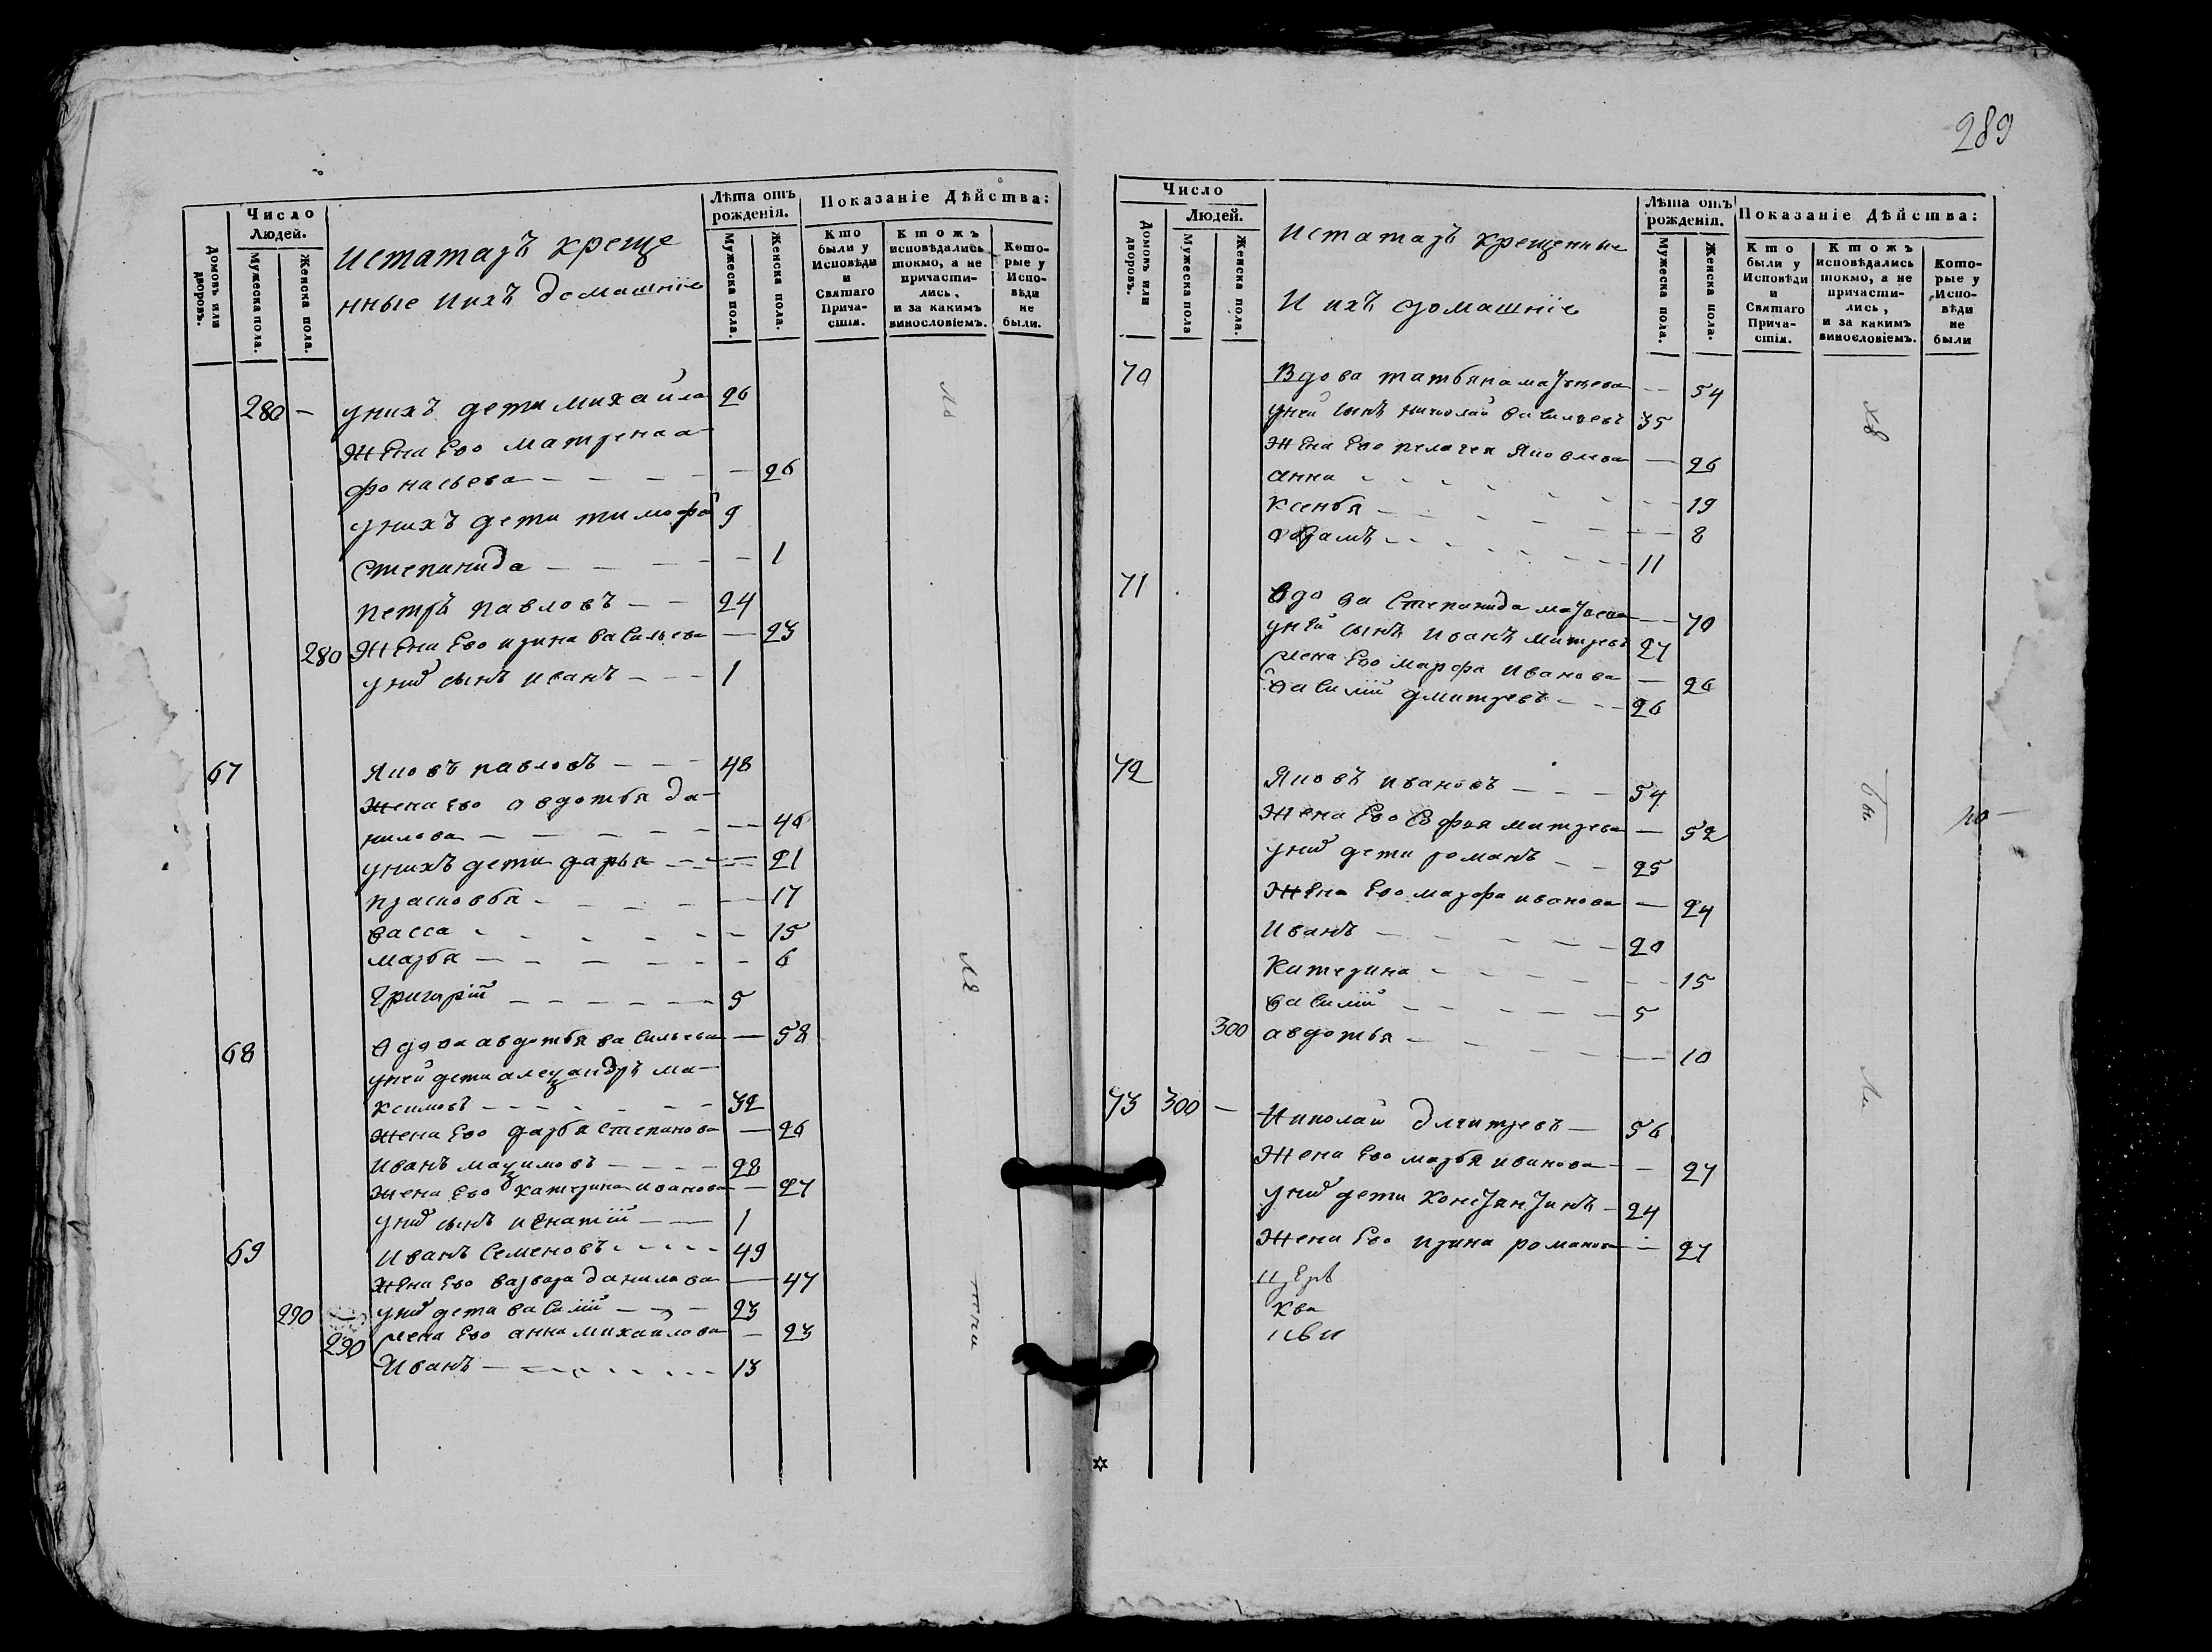 289
Число
Людей.
Домовъ или дворовъ.
Мужеска пола.
Женска пола.
истатаръ креще
нные ихъ домашніе
Лѣта отъ рожденія.
Мужеска пола.
Женска пола.
Показаніе Дѣйства:
Кто были у Исповѣди и Святаго Прича-стія.
Ктожъ исповѣдались токмо, а не причасти-лись, и за какимъ винословіемъ.
Кото-рые у Испо-вѣди не были.
280 — унихъ дети михаила 26
жена ево матрена а-
фонасьева — 26
унихъ дети тимофей 9
степанида — 1
петръ павловъ — 24
280 жена ево ирина васильева — 23
у них сынъ иванъ — 1
67 яковъ павловъ — 48
жена ево авдотья да-
нилова — 46
унихъ дети дарья — 21
прасковья — 17
васса — 15
марья — 6
григорій — 5
68 вдова авдотья васильева — 58
уней дети александръ ма-
ксимовъ — 32
жена ево дарья степанова — 26
иванъ максимовъ — 28
жена ево катерина иванова — 27
у них сынъ игнатій — 1
69 иванъ семеновъ — 49
жена ево варвара данилова — 47
290 — у них дети василій — 23
290 жена ево анна михайлова — 23
иванъ — 13
Число
Людей.
Домовъ или дворовъ.
Мужеска пола
Женска пола.
истатаръ крещенные
и ихъ домашніе
Лѣта отъ рожденія.
Мужеска пола.
Женска пола.
Показаніе Дѣйства:
Кто были у Исповѣди и Святаго Прича-стія.
Ктожъ исповѣдались токмо, а не причасти-лись, и за какимъ винословіемъ.
Кото-рые у Испо-вѣди не были
70 вдова татьяна матвеева — 54
уней сынъ николай васильевъ 35
жена ево пелагея яковлева — 26
анна — 19
ксенья — 8
абрамъ — 11
71 вдова степанида матвеева — 70
уней сынъ иванъ митревъ 27
жена ево марфа иванова — 26
василій дмитревъ — 26
72 яковъ ивановъ — 54
жена ево софья митрева — 52
у них дети романъ — 25
жена ево марфа иванова — 24
иванъ — 20
катерина — 15
василій — 5
300 авдотья — 10
73 300 — николай дмитревъ — 56
жена ево марья иванова — 27
у них дети константинъ — 24
жена ево ирина романова — 27
церк